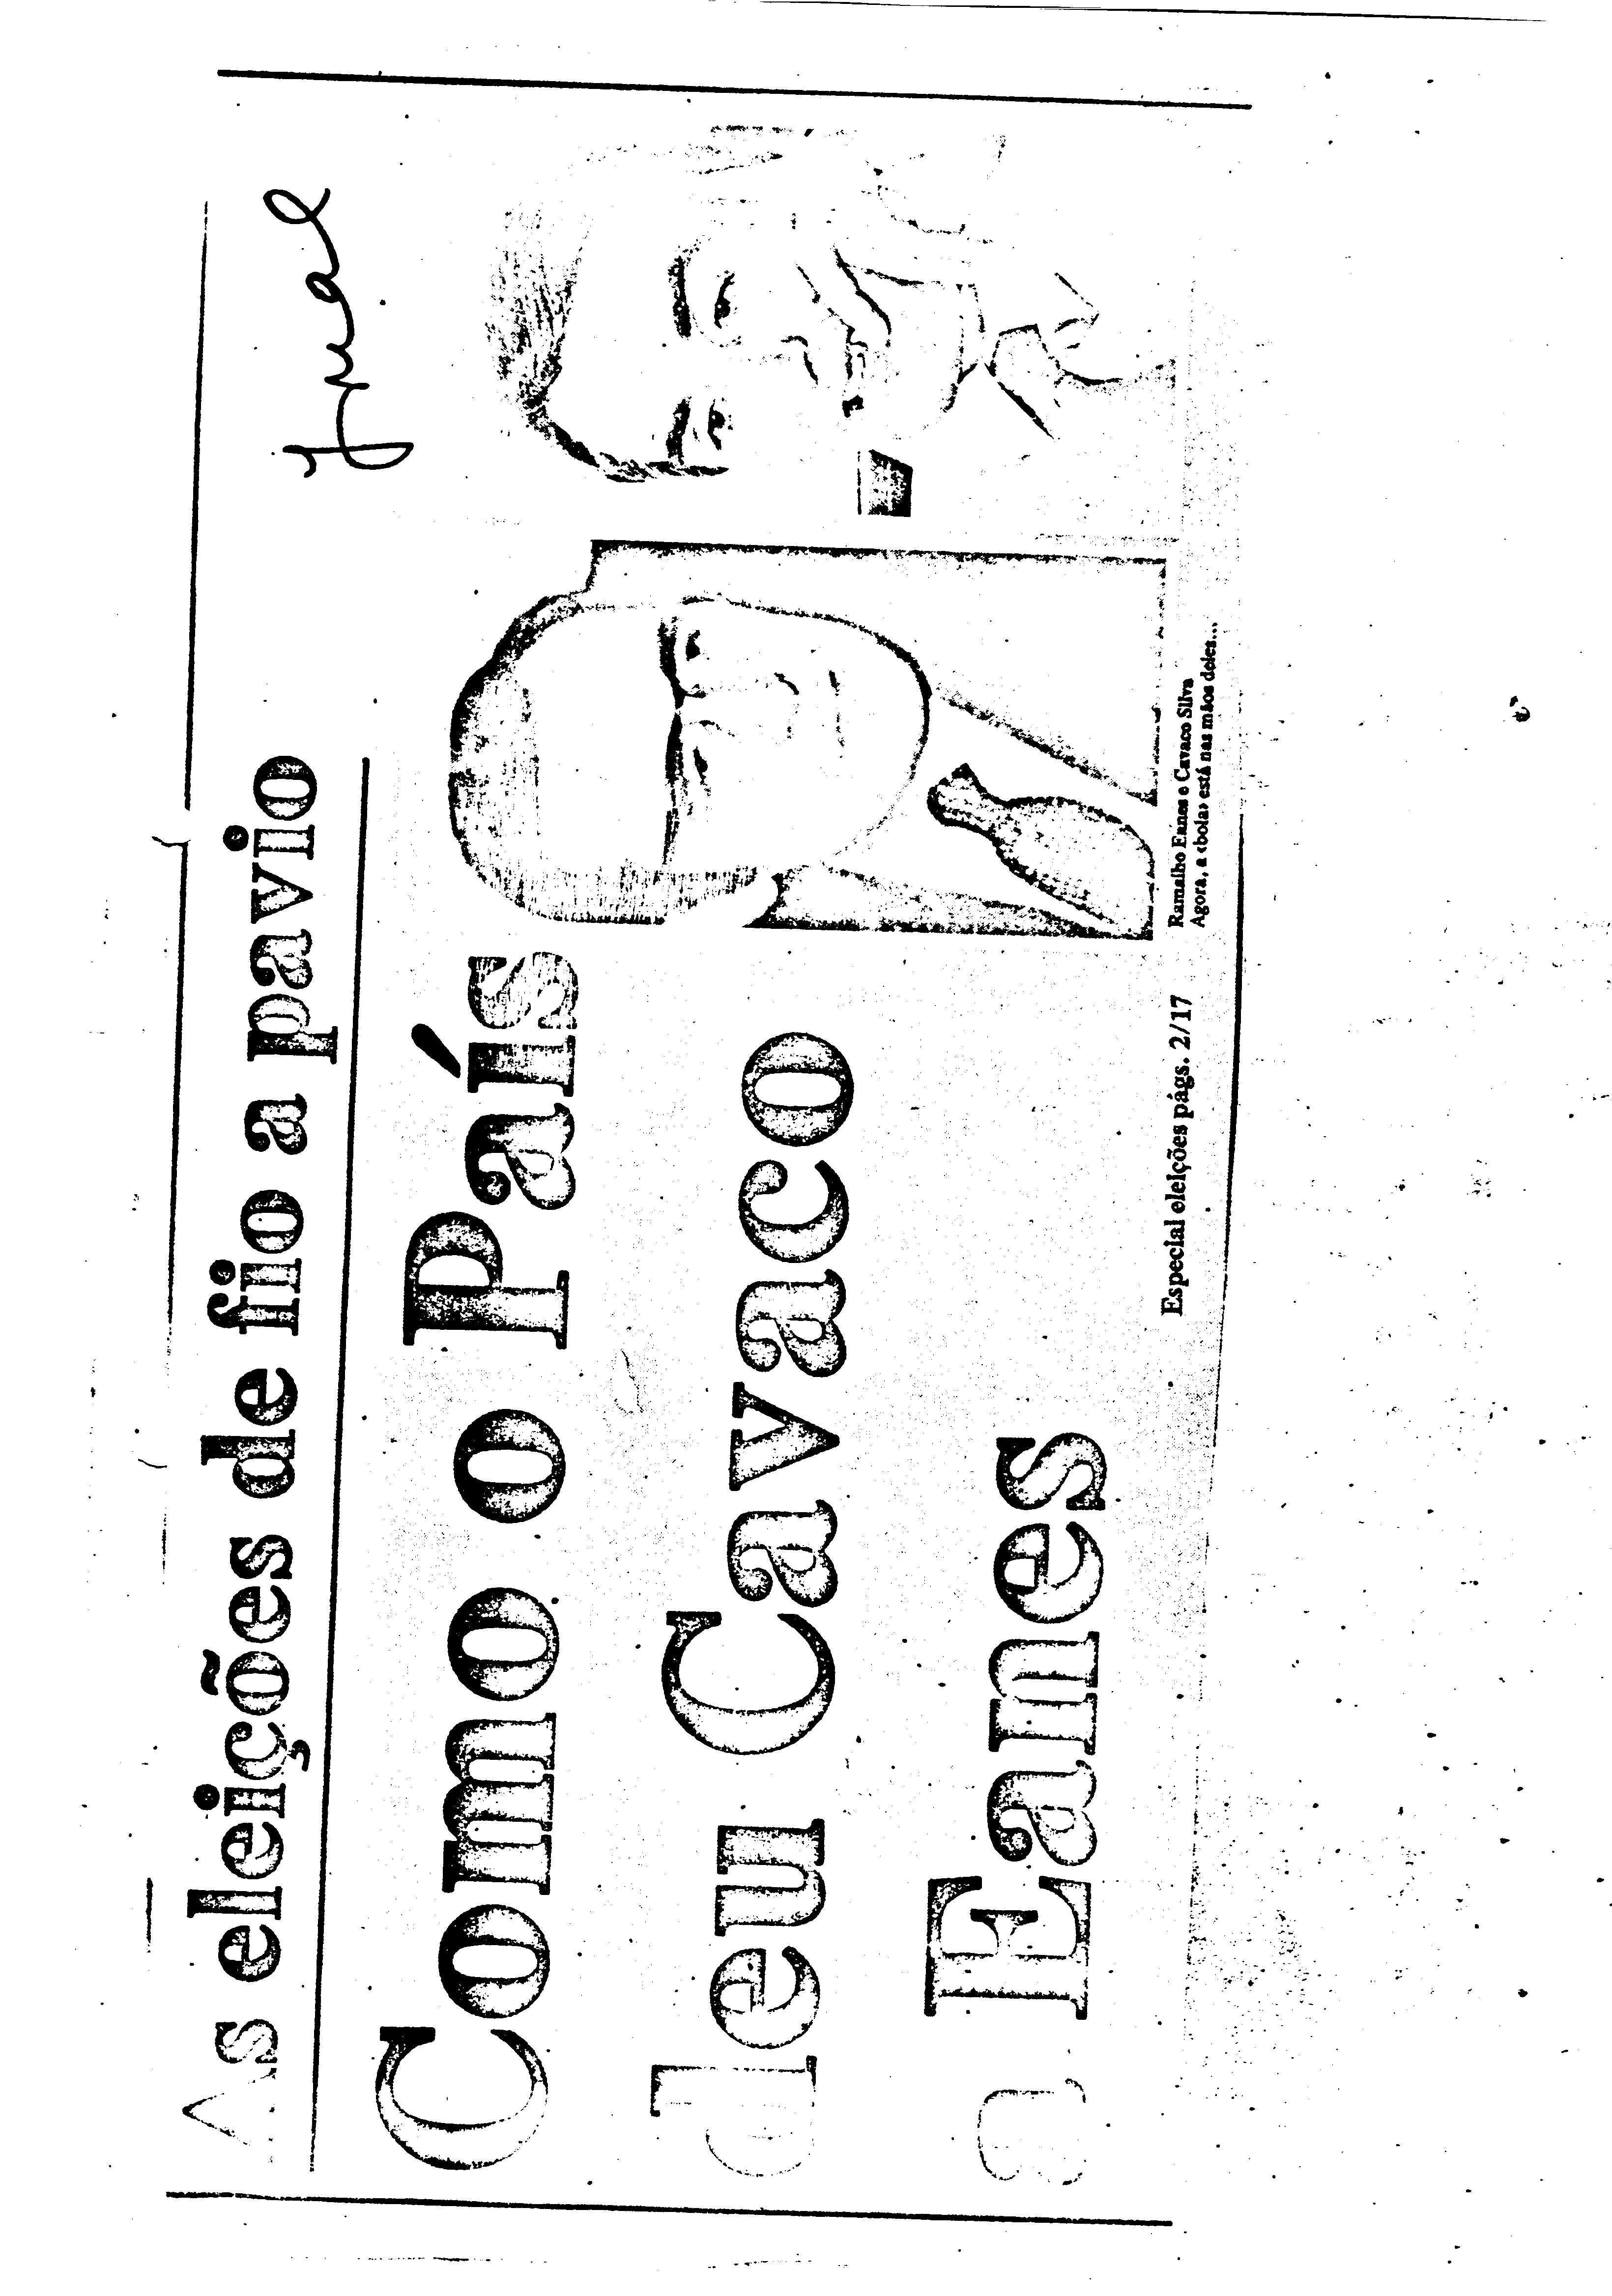 As eleições de fio a pavio
Como o País
deu Cavaco
a Eanes
Especial eleições págs. 2/17
Ramalho Eanes e Cavaco Silva
Agora, a «bola» está nas mãos deles...